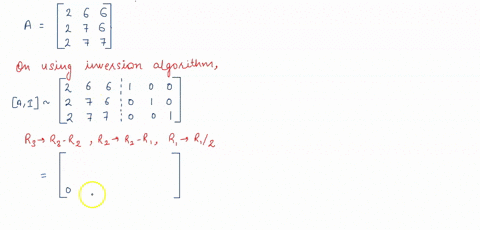 A = [2 6 6
2 7 6
2 7 7]
On using inversion algorithm,
[A, I] ~ [2 6 6 ¦ 1 0 0
2 7 6 ¦ 0 1 0
2 7 7 ¦ 0 0 1]
R₃→R₂-R₂ , R₂→R₂-R₁, R₁→R₁/2
= [
0 ]